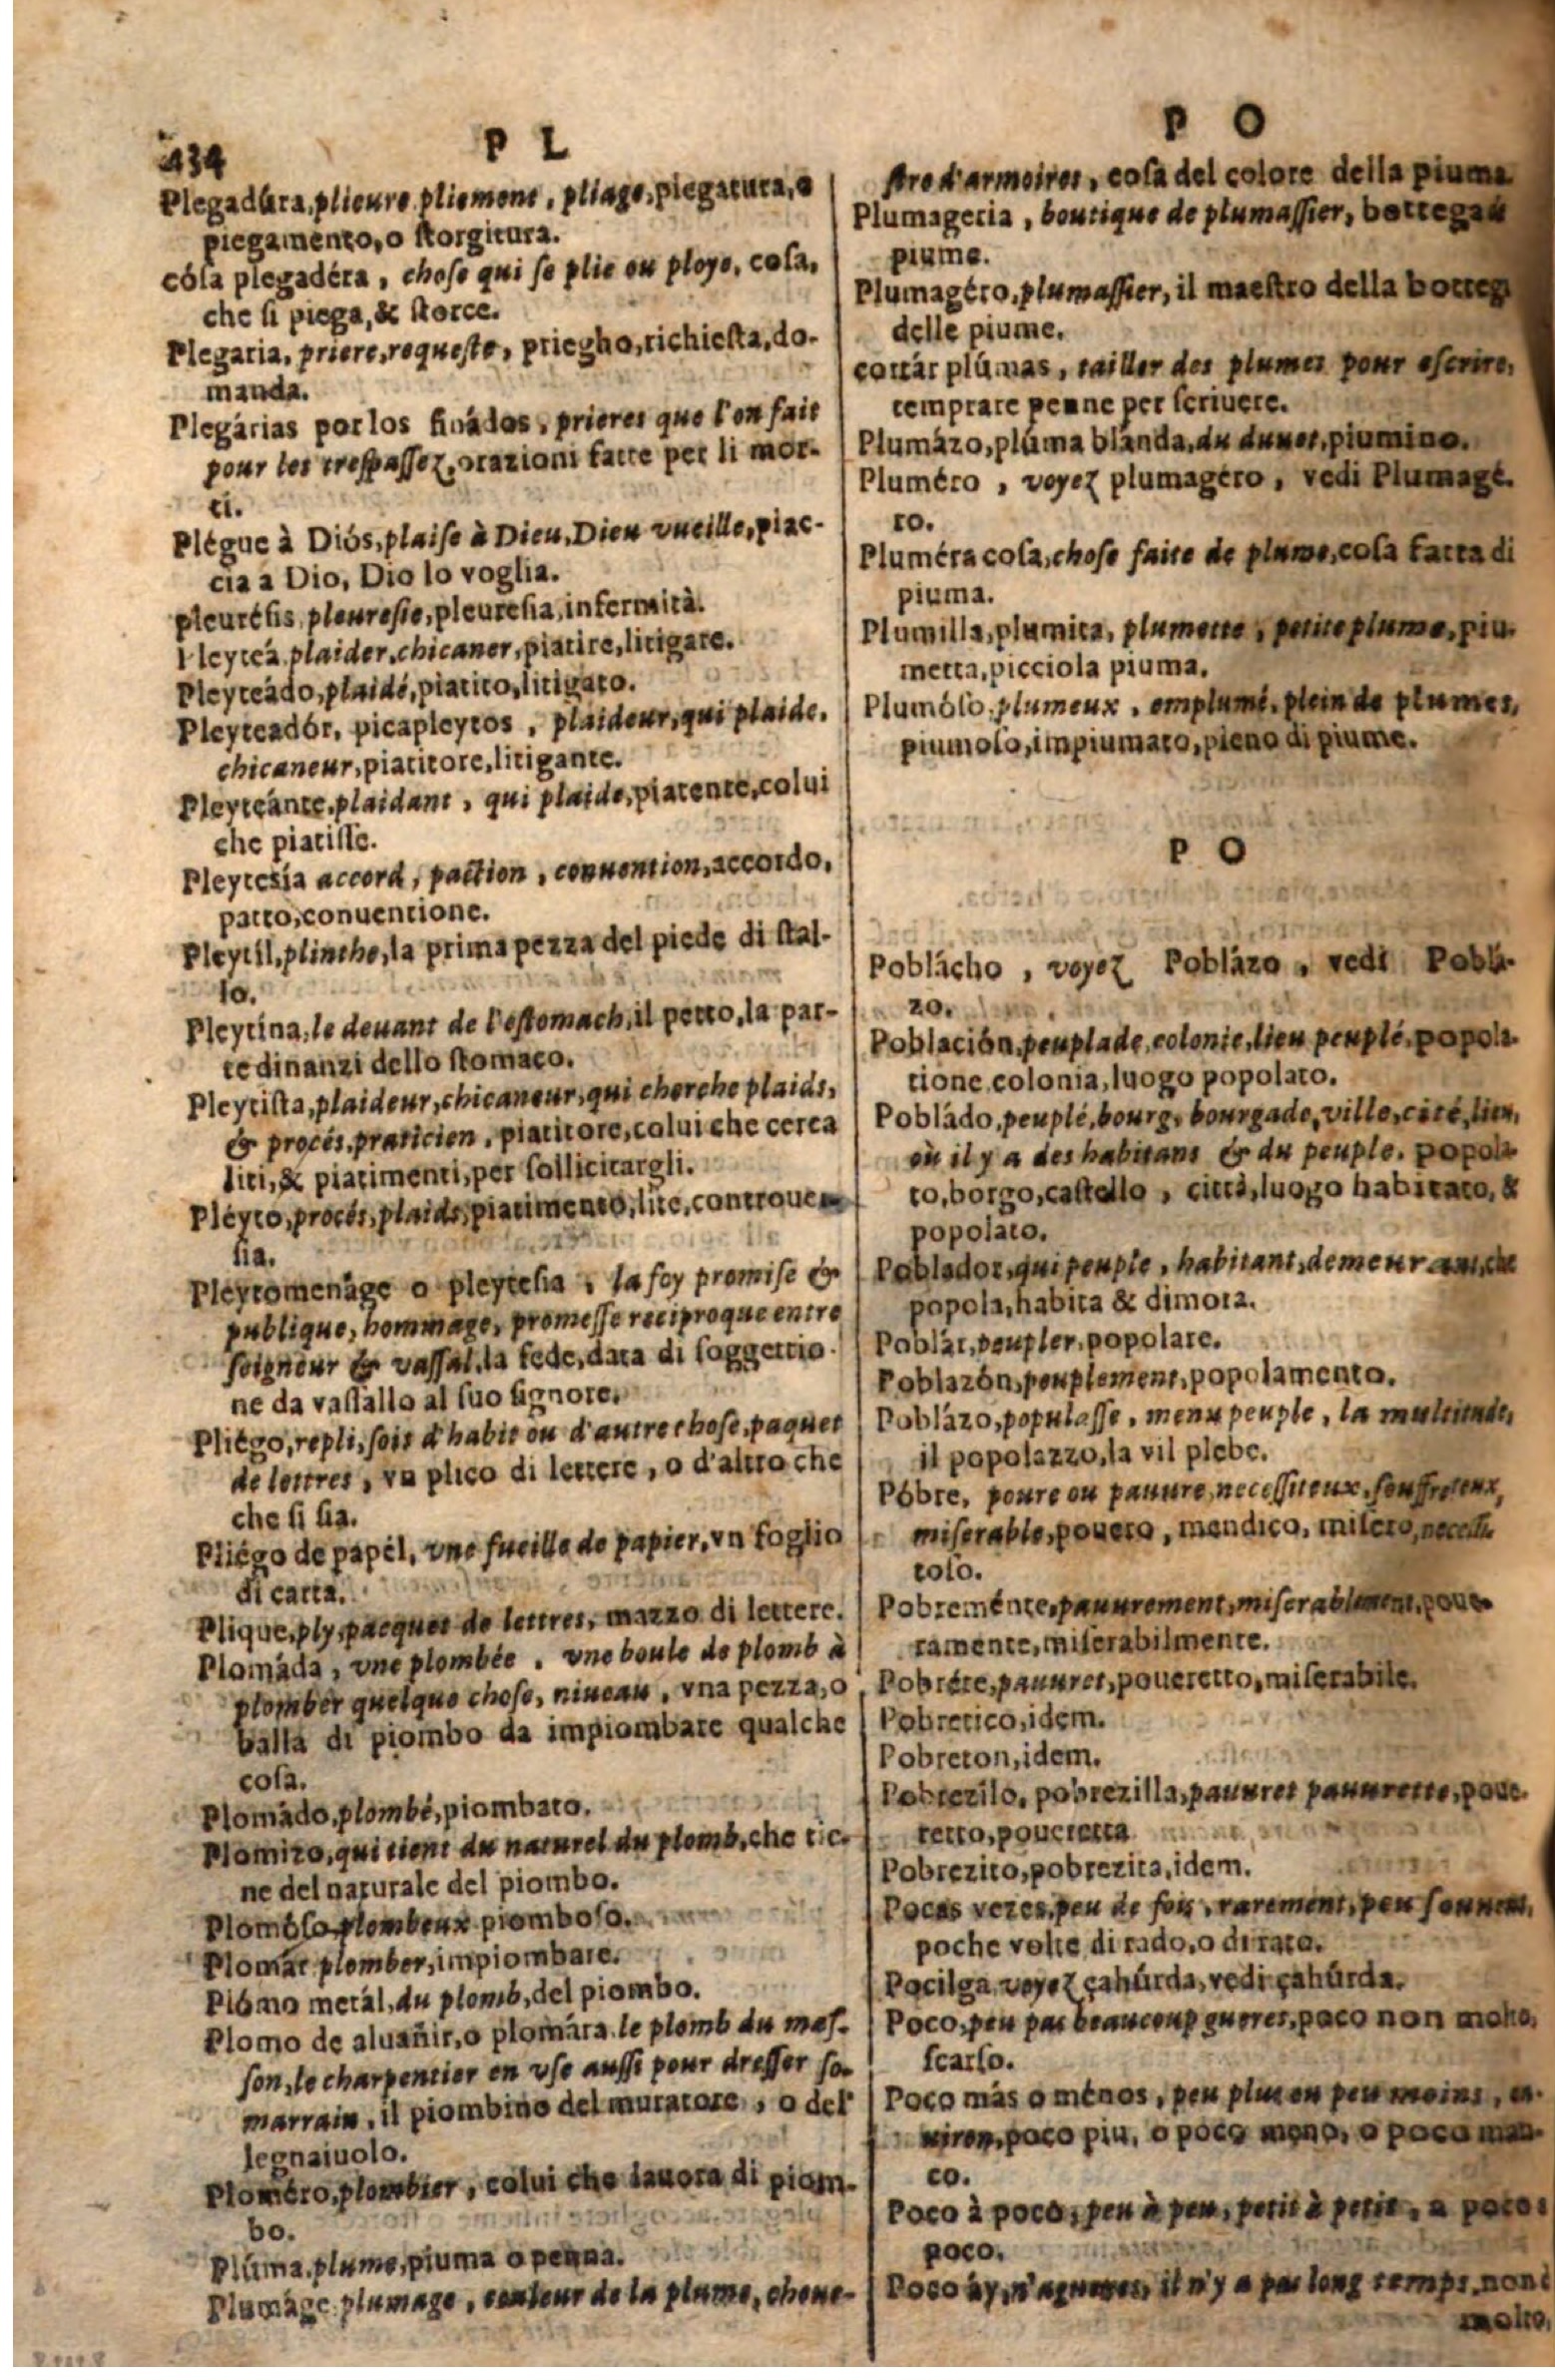 434
P L
Plegadúra, plieure pliement, pliage, piegatura, o
piegamento, o ſtorgitura.
cóſa plegadéra, choſe qui ſe plie ou ploye, coſa,
che ſi piega, & ſtorce.
Plegaria, priere, requeſte, priegho, richieſta, do-
manda.
Plegárias por los finádos, prieres que l'on fait
pour les treſpaſſez, orazioni fatte per li mor-
ti.
Plégue à Diós, plaiſe à Dieu, Dieu vueille, piac-
cia a Dio, Dio lo voglia.
pleuréſis, pleureſie, pleureſia, infermità.
Pleyteá, plaider, chicaner, piatire, litigare.
Pleyteádo, plaidé, piatito, litigato.
Pleyteadór, picapleytos, plaideur, qui plaide,
chicaneur, piatitore, litigante.
Pleyteánte, plaidant, qui plaide, piatente, colui
che piatiſſe.
Pleytesía accord, paction, conuention, accordo,
patto, conuentione.
Pleytíl, plinthe, la prima pezza del piede di ſtal-
lo.
Pleytína, le deuant de l'eſtomach, il petto, la par-
te dinanzi dello ſtomaco.
Pleytiſta, plaideur, chicaneur, qui cherche plaids,
& procés, praticien, piatitore, colui che cerca
liti, & piatimenti, per ſollicitargli.
Pléyto, procés, plaids, piatimento, lite, controuer-
ſia.
Pleytomenàge o pleyteſia, la foy promiſe &
publique, hommage, promeſſe reciproque entre
ſeigneur & vaſſal, la fede, data di ſoggettio-
ne da vaſſallo al ſuo ſignore.
Pliégo, repli, ſoit d'habit ou d'autre choſe, paquet
de lettres, vn plico di lettere, o d'altro che
che ſi ſia.
Pliégo de papél, vne fueille de papier, vn foglio
di carta.
Plique, ply, pacquet de lettres, mazzo di lettere.
Plomáda, vne plombée, vne boule de plomb à
plomber quelque choſe, niueau, vna pezza, o
balla di piombo da impiombare qualche
coſa.
Plomádo, plombé, piombato.
Plomizo, qui tient du naturel du plomb, che tie-
ne del naturale del piombo.
Plomóſo plombeux piomboſo.
Plomár plomber, impiombare.
Plómo metál, du plomb, del piombo.
Plomo de aluañir, o plomára le plomb du maſ-
ſon, le charpentier en vſe auſſi pour dreſſer ſo-
marrain, il piombino del muratore, o del
legnaiuolo.
Ploméro, plombier, colui che lauora di piom-
bo.
Plúma, plume, piuma o penna.
Plumáge plumage, couleur de la plume, cheue-
P O
ſtre d'armoires, coſa del colore della piuma.
Plumageria, boutique de plumaſſier, bottega
piume.
Plumagéro, plumaſſier, il maeſtro della botteg
delle piume.
cortár plúmas, tailler des plumes pour eſcrire,
temprare penne per ſcriuere.
Plumázo, plúma blánda, du duuet, piumino.
Pluméro, voyez plumagéro, vedi Plumagé-
ro.
Pluméra coſa, choſe faite de plume, coſa fatta di
piuma.
Plumilla, plumita, plumette, petite plume, piu-
metta, picciola piuma.
Plumóſo, plumeux, emplumé, plein de plumes,
piumoſo, impiumato, pieno di piume.
P O
Poblácho, voyez Poblázo, vedi Poblá-
zo.
Población, peuplade, colonie, lieu peuplé, popola-
tione colonia, luogo popolato.
Pobládo, peuplé, bourg, bourgade, ville, cité, lieu,
où il y a des habitans & du peuple, popola-
to, borgo, caſtello, città, luogo habitato, &
popolato.
Poblador, qui peuple, habitant, demeurant, che
popola, habita & dimora.
Poblár, peupler, popolare.
Poblazón, peuplement, popolamento.
Poblázo, populaſſe, menu peuple, la multitude,
il popolazzo, la vil plebe.
Póbre, poure ou pauure, neceſſiteux, ſouffreteux,
miſerable, pouero, mendico, miſero, neceſſi-
toſo.
Pobreménte, pauurement, miſerablement, poue-
ramente, miſerabilmente.
Pobréte, pauuret, poueretto, miſerabile.
Pobretico, idem.
Pobreton, idem.
Pobrezilo, pobrezilla, pauuret pauurette, poue-
retto, poueretta
Pobrezito, pobrezita, idem.
Pocas vezes, peu de fois, rarement, peu ſouuent,
poche volte di rado, o di raro.
Pocilga voyez çahúrda, vedi çahúrda.
Poco, peu pas beaucoup gueres, poco non molto,
ſcarſo.
Poco más o ménos, peu plus ou peu moins, en-
uiron, poco piu, o poco meno, o poco man-
co.
Poco à poco, peu à peu, petit à petit, a poco a
poco.
Poco áy, n'agueres, il n'y a pas long temps, non è
molto.